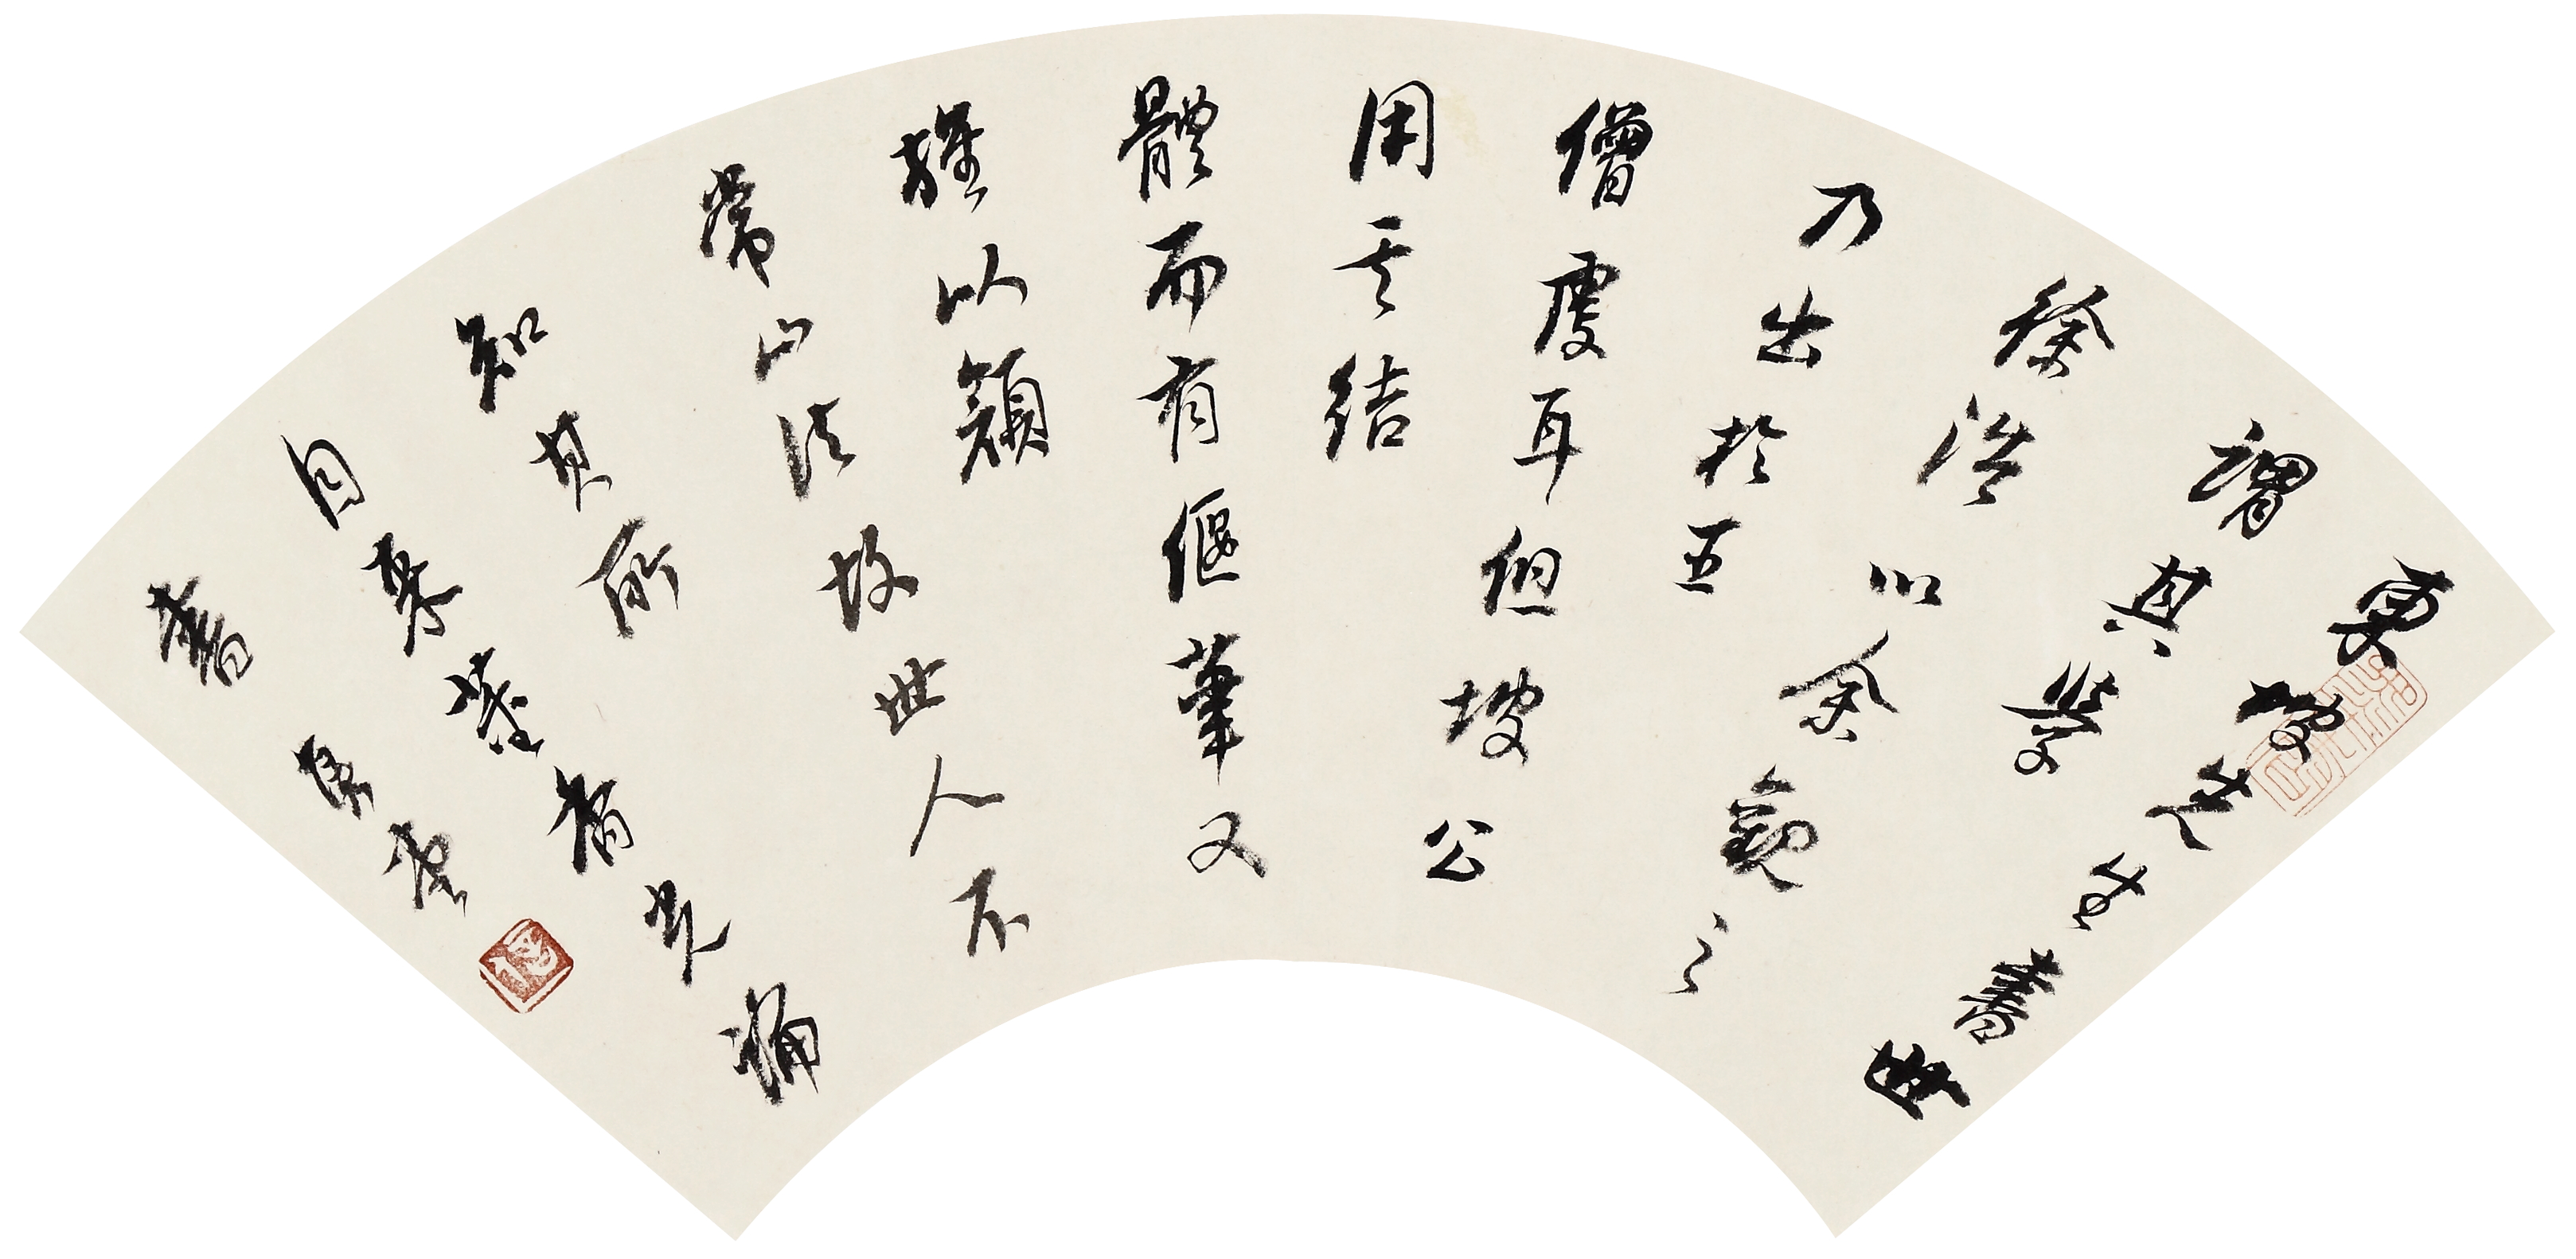 東坡先生書世
謂其學
徐浩以余觀之
乃出於王
僧虔耳但坡公
用其結
體而有偃筆又
雜以顏
常山法故世人不
知其所
自來董香光論
書